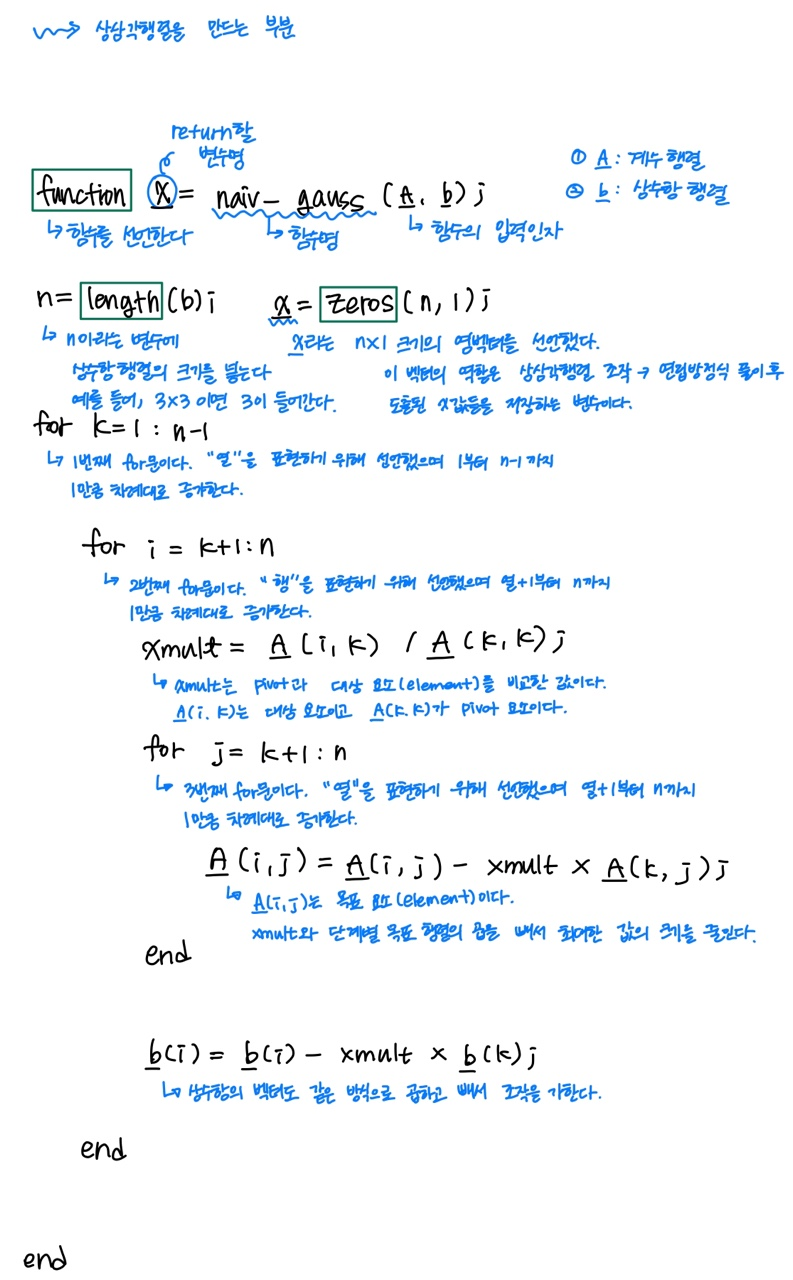 상삼각행렬을 만드는 부분
return할
변수명
① A : 계수 행렬
function x = naiv_gauss (A, b);
② b : 상수항 행렬
↳ 함수를 선언한다 ↳ 함수명 ↳ 함수의 입력인자
n = length(b); x = zeros(n, 1);
↳ n이라는 변수에 x라는 n×1 크기의 영벡터를 선언했다.
상수항 행렬의 크기를 넣는다 이 벡터의 역할은 상삼각행렬 조작 → 연립방정식 풀이 후
예를 들어, 3×3 이면 3이 들어간다. 도출된 x값들을 저장하는 변수이다.
for k=1 : n-1
↳ 1번째 for문이다. "열"을 표현하기 위해 선언했으며 1부터 n-1 까지
1만큼 차례대로 증가한다.
for i = k+1:n
↳ 2번째 for문이다. "행"을 표현하기 위해 선언했으며 열+1부터 n까지
1만큼 차례대로 증가한다.
xmult = A(i, k) / A(k, k);
↳ xmult는 pivot과 대상 요소(element)를 비교한 값이다.
A(i, k)는 대상 요소이고 A(k, k)가 pivot 요소이다.
for j= k+1 : n
↳ 3번째 for문이다. "열"을 표현하기 위해 선언했으며 열+1부터 n까지
1만큼 차례대로 증가한다.
A(i,j) = A(i,j) - xmult × A(k, j);
↳ A(i,j)는 목표 요소(element)이다.
xmult와 단계별 목표 행렬의 곱을 빼서 값의 크기를 줄인다.
end
b(i) = b(i) - xmult × b(k);
↳ 상수항의 벡터도 같은 방식으로 곱하고 빼서 조작을 가한다.
end
end